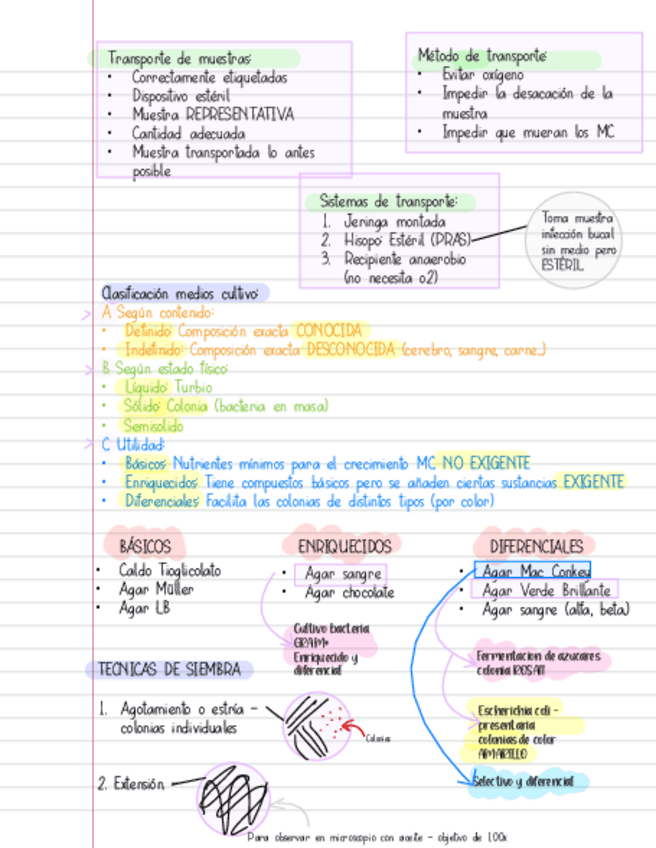 Transporte de muestras:
• Correctamente etiquetadas
• Dispositivo estéril
• Muestra REPRESENTATIVA
• Cantidad adecuada
• Muestra transportada lo antes
posible
Método de transporte:
• Evitar oxígeno
• Impedir la desacación de la
muestra
• Impedir que mueran los MC
Sistemas de transporte:
1. Jeringa montada
2. Hisopo: Estéril (PRAS)
3. Recipiente anaerobio
(no necesita o2)
Toma muestra
infección bucal
sin medio pero
ESTÉRIL
Clasificación medios cultivo:
A. Según contenido:
• Definido: Composición exacta CONOCIDA
• Indefinido: Composición exacta DESCONOCIDA (cerebro, sangre, carne...)
B. Según estado físico:
• Líquido: Turbio
• Sólido: Colonia (bacteria en masa)
• Semisolido
C. Utilidad:
• Básicos: Nutrientes mínimos para el crecimiento MC NO EXIGENTE
• Enriquecidos: Tiene compuestos básicos pero se añaden ciertas sustancias EXIGENTE
• Diferenciales: Facilita las colonias de distintos tipos (por color)
BÁSICOS
• Caldo Tioglicolato
• Agar Müller
• Agar LB
ENRIQUECIDOS
• Agar sangre
• Agar chocolate
Cultivo bacteria
GRAM+
Enriquecido y
diferencial
DIFERENCIALES
• Agar Mac Conkey
• Agar Verde Brillante
• Agar sangre (alfa, beta)
Fermentacion de azucares
colonia ROSA!!
Escherichia coli -
presentaria
colonias de color
AMARILLO
Selectivo y diferencial
TECNICAS DE SIEMBRA
1. Agotamiento o estría -
colonias individuales
Colonias
2. Extensión
Para observar en microscopio con aceite - objetivo de 100x